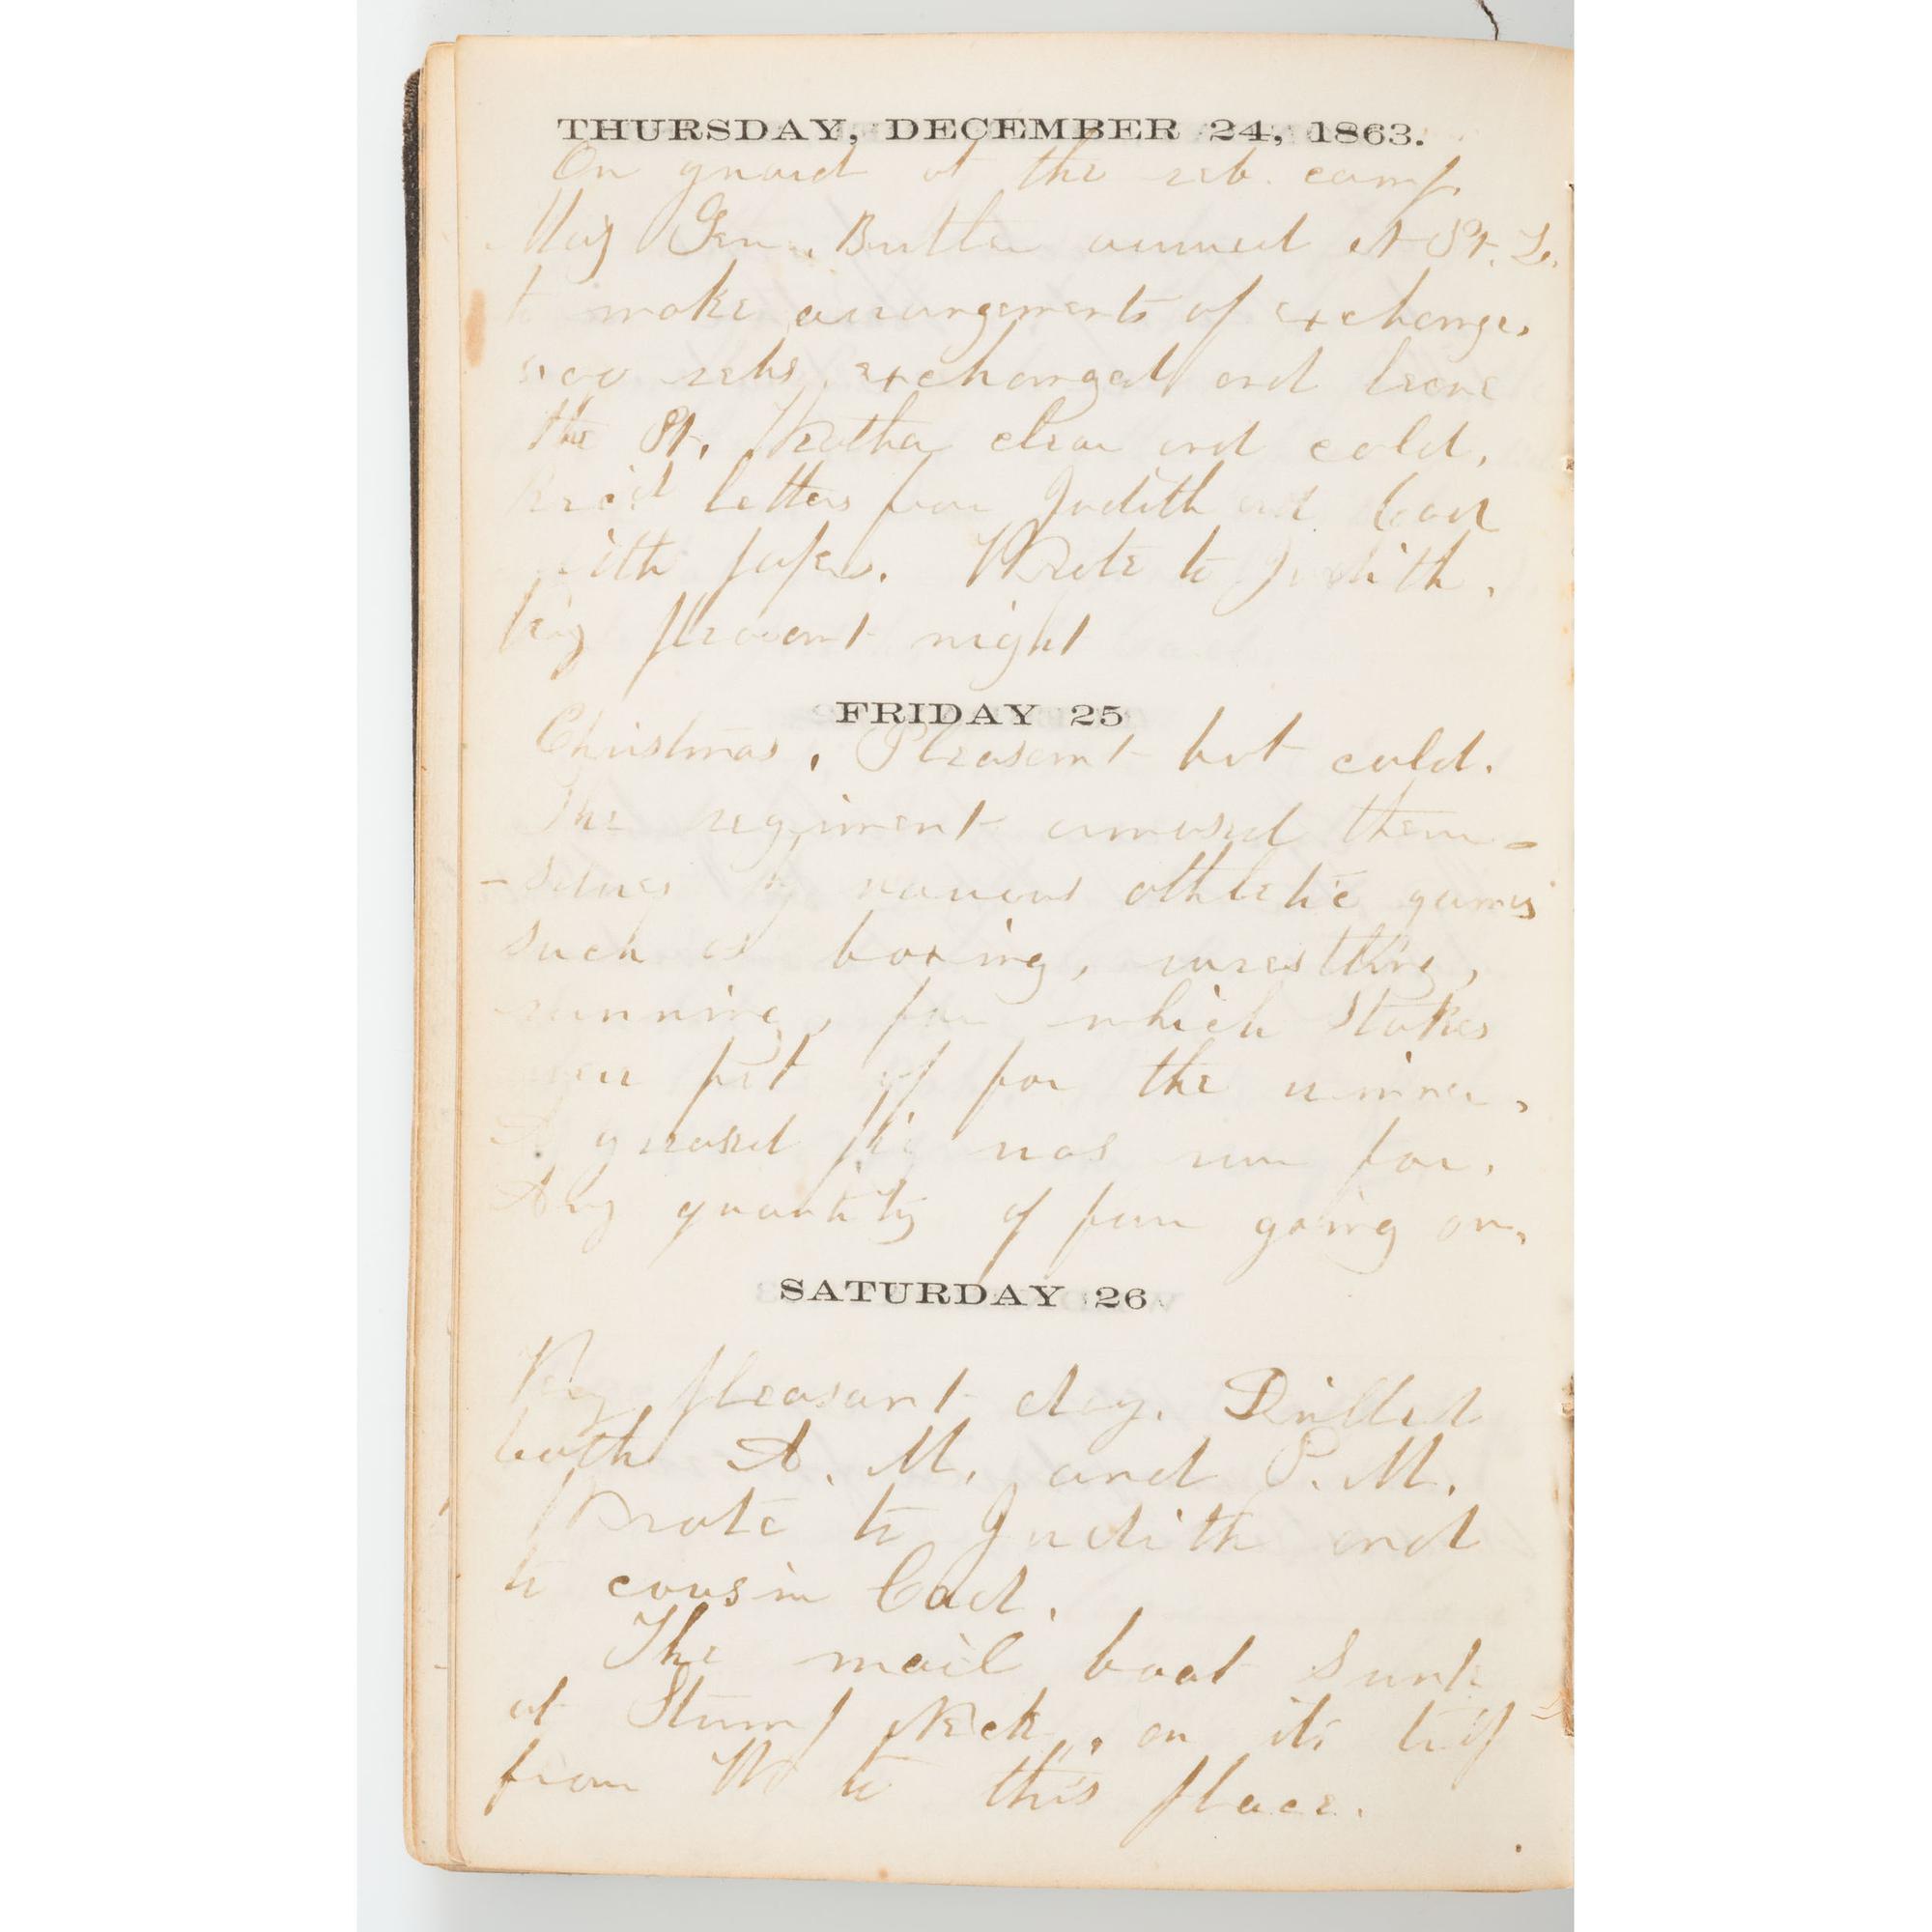 THURSDAY, DECEMBER 24, 1863.
On guard at the reb. camp.
Maj Gen. Butler arrived at
to make arrangements of exchange.
rebs exchanged and leave
the Weather clear and cold.
Rec'd letters from Judith and Cad
with papers. Wrote to Judith.
Very pleasant night
FRIDAY 25
Christmas. Pleasant but cold.
The regiment amused them-
-selves by various athletic games
such as boxing, wrestling,
running, for which stakes
were put up for the winner.
A greased pig was run for.
Any quantity of fun going on.
SATURDAY 26
Very pleasant day. Drilled
both A. M. and P. M.
Wrote to Judith and
to cousin Cad.
The mail boat sunk
at Stump Neck, on its trip
from W to this place.